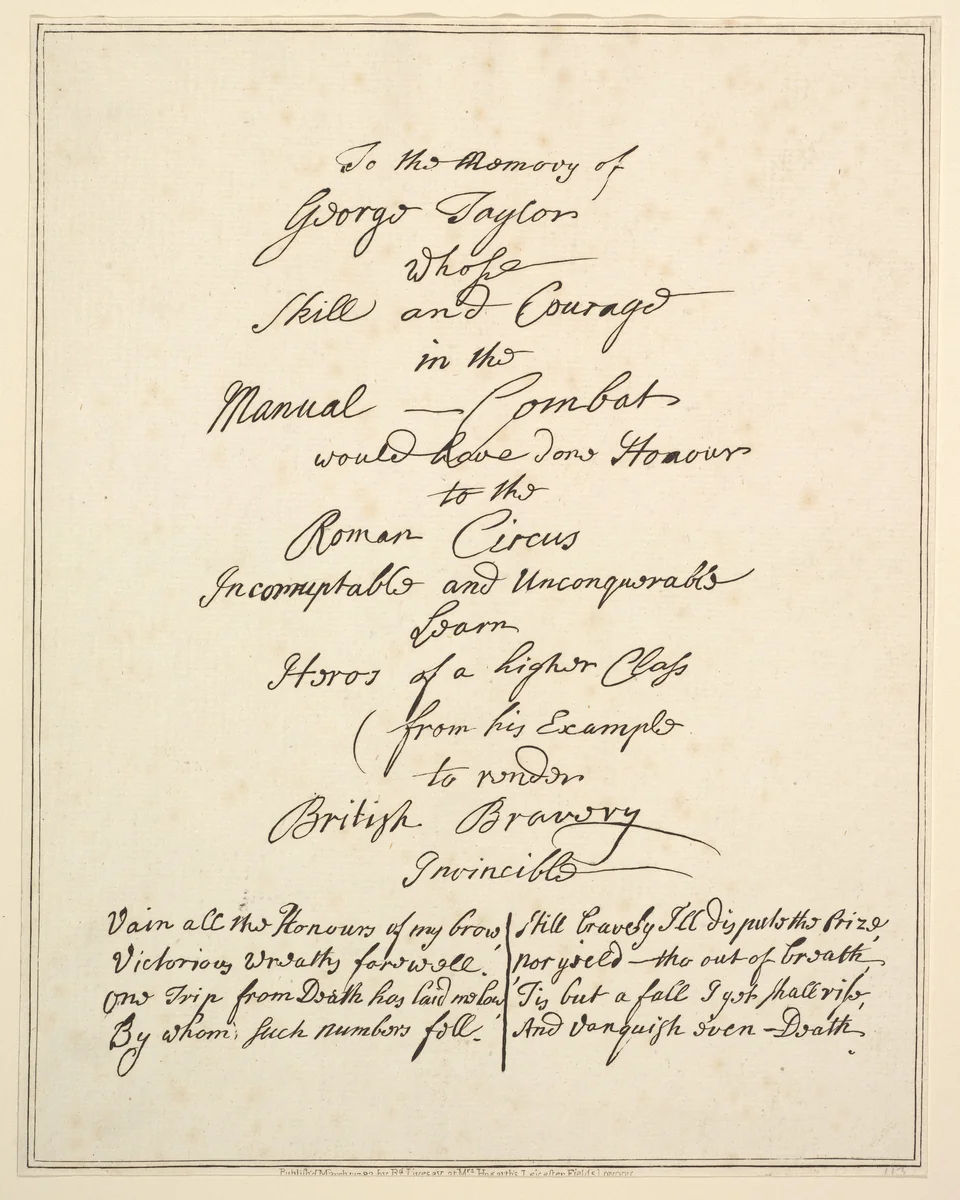 To the Memory of
George Taylor
whose
Skill and Courage
in the
Manual — Combat
would have done Honour
to the
Roman Circus
Incorruptable and Unconquerable
Learn
Heros of a higher Class
(from his Example
to render
British Bravery
Invincible
Vain all the Honours of my brow
Victorious Wreaths farewell.
One Trip from Death has laid me low
By whom such numbers fell.
Still bravely I'll dispute the Prize
nor yield — tho out of breath
'Tis but a fall I yet shall rise
And Vanquish even — Death.
Publish'd March by Rd. Livesay at Mrs. Hogarth's Leicester Fields London
113